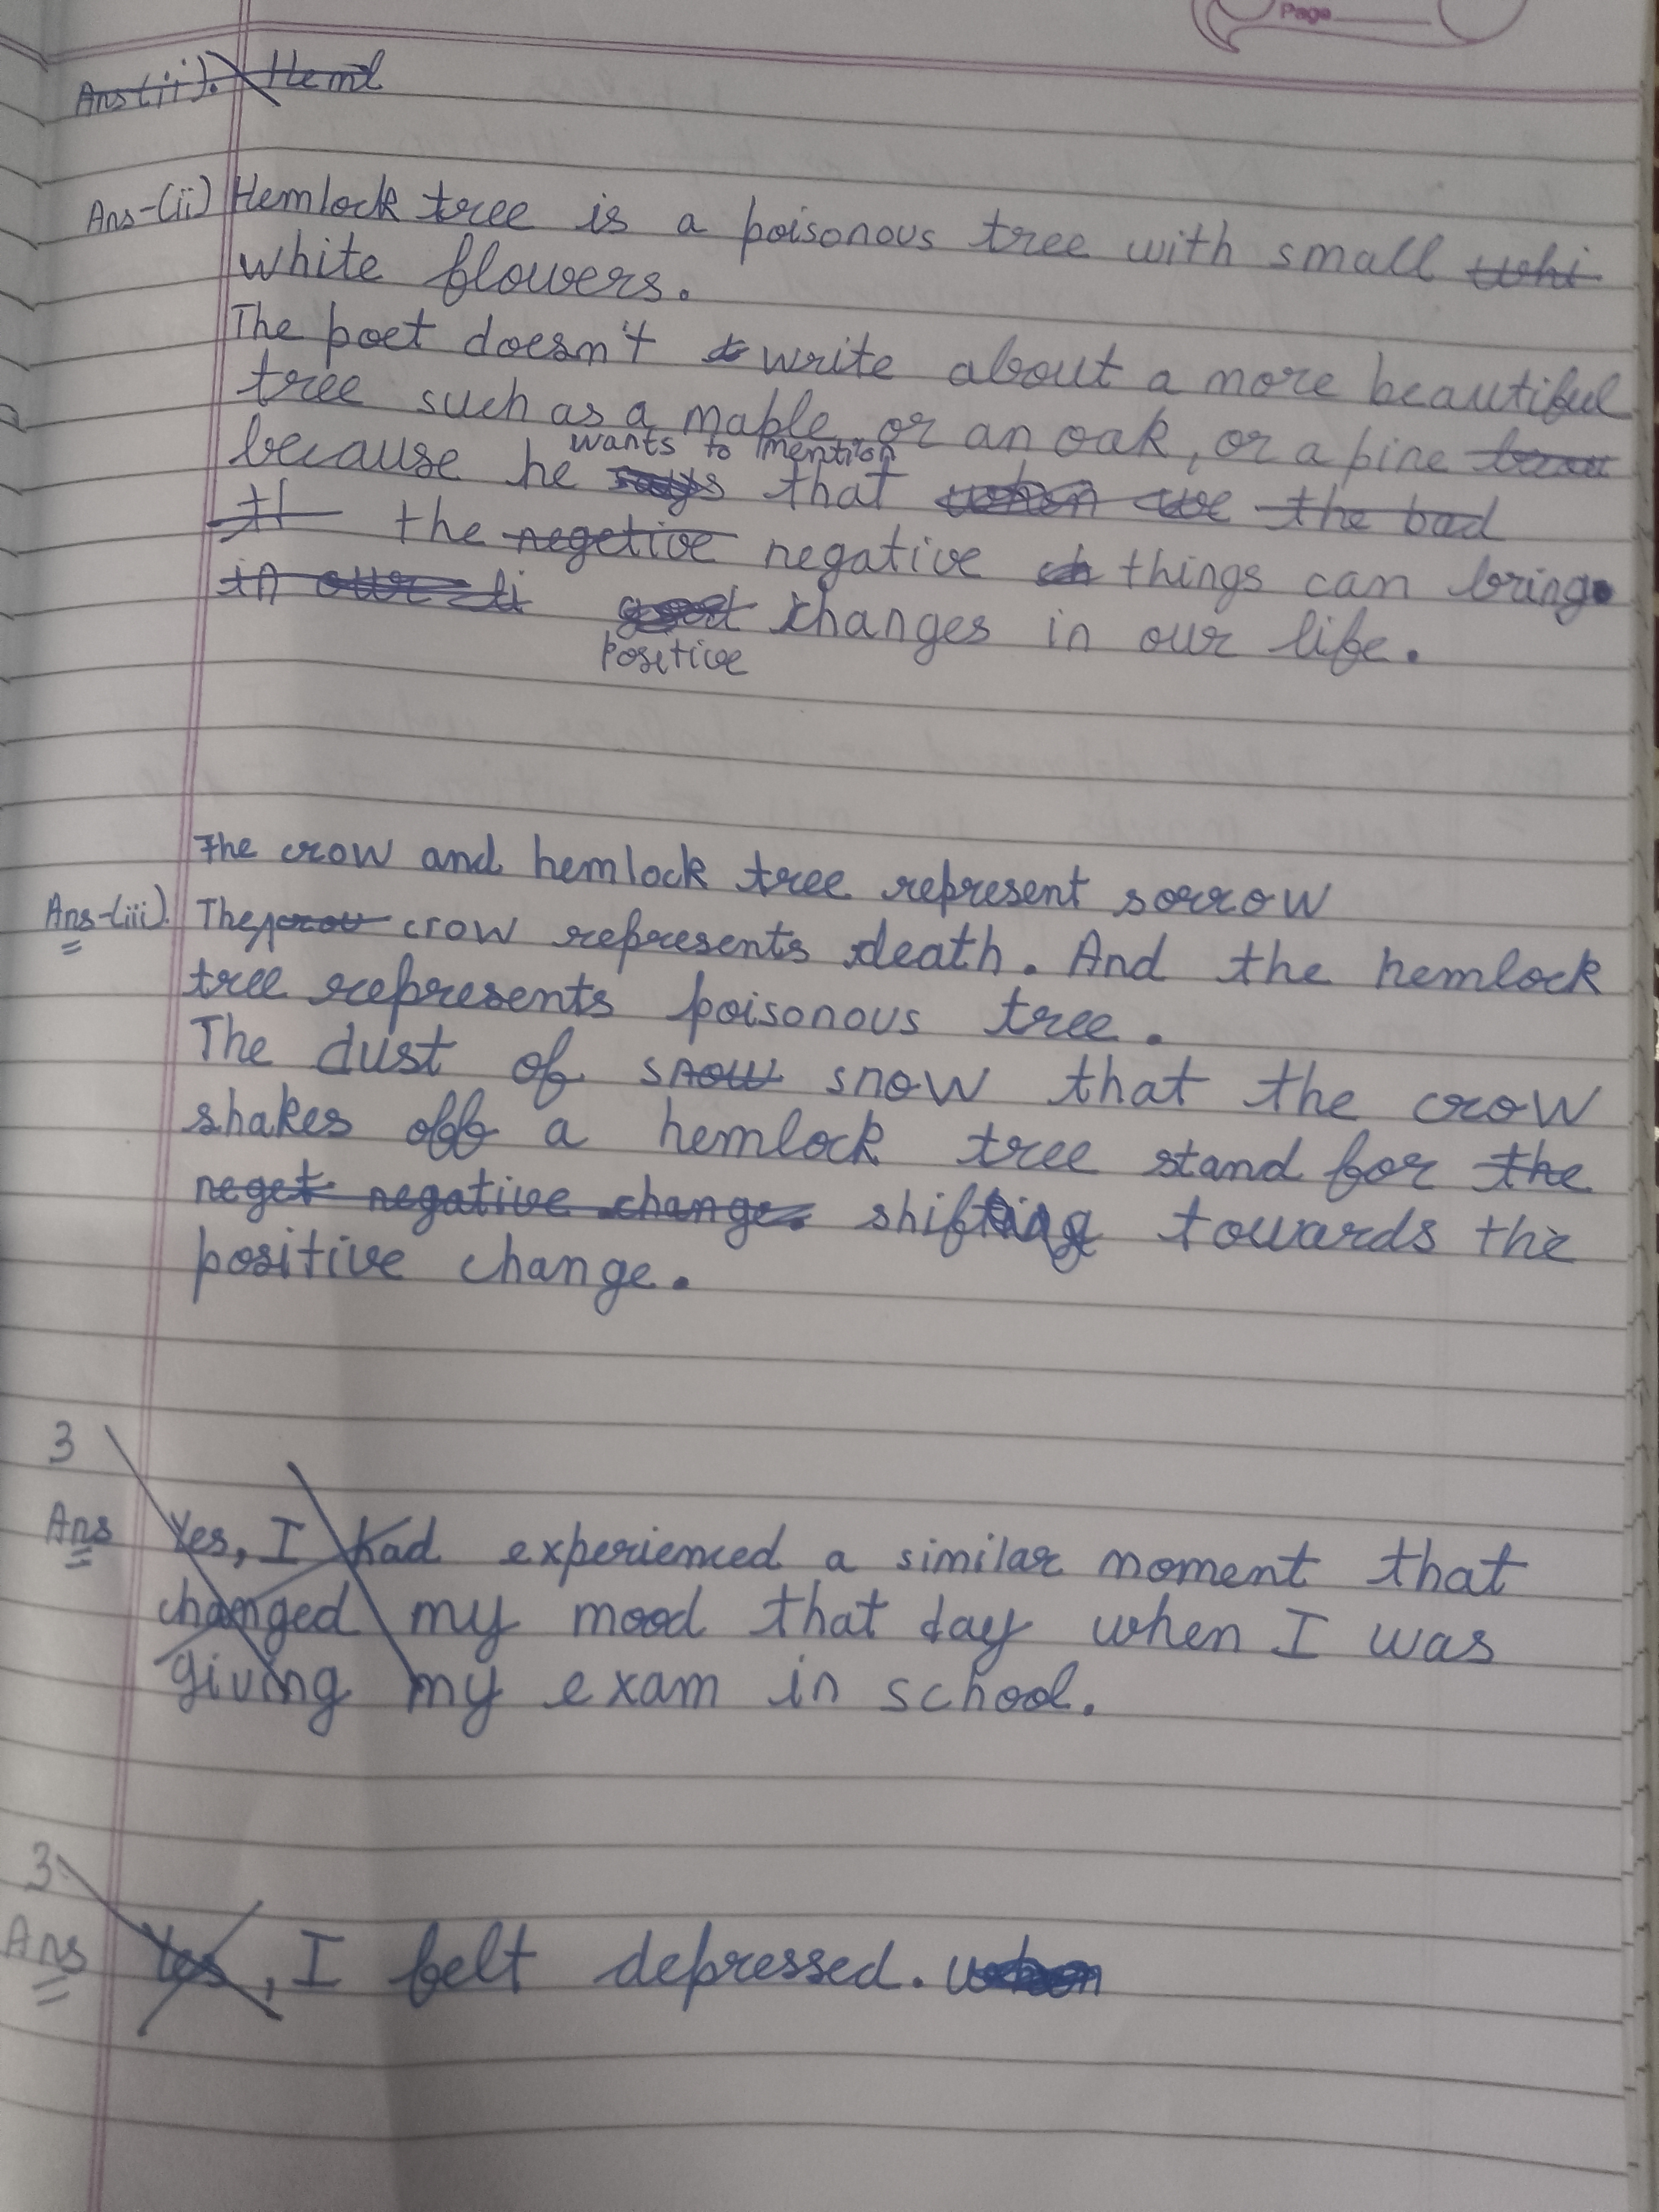 Page
Ans(ii). Heml
Ans-(ii) Hemlock tree is a poisonous tree with small whi
white flowers.
The poet doesn't write about a more beautiful
tree such as a maple or an oak, or a pine
wants to mention
because he that when we the bad
the negetive negative things can bring
in our li good changes in our life.
positive
The crow and hemlock tree represent sorrow
Ans-(iii). The crow crow represents death. And the hemlock
tree represents poisonous tree.
The dust of snow snow that the crow
shakes off a hemlock tree stand for the
neget negative change. shifting towards the
positive change.
3
Ans Yes, I had experienced a similar moment that
changed my mood that day when I was
giving my exam in school.
3
Ans Yes, I felt depressed. when